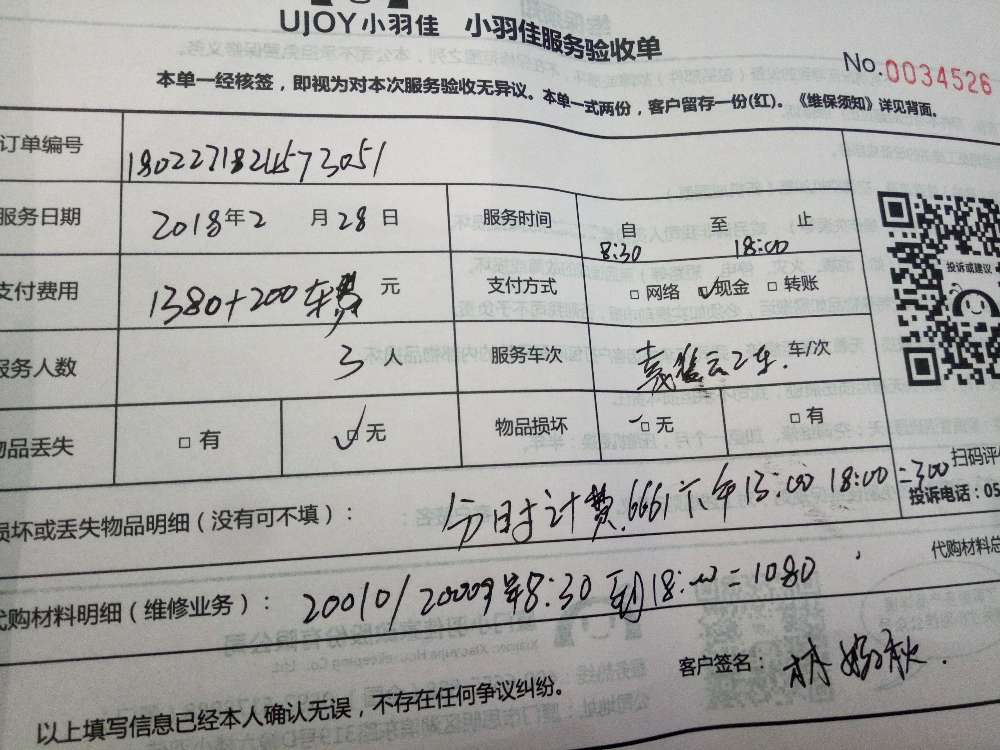 UJOY小羽佳 小羽佳服务验收单
No.0034526
本单一经核签，即视为对本次服务验收无异议。本单一式两份，客户留存一份(红)。《维保须知》详见背面。
订单编号
服务日期 2018年2月28日 服务时间 自 至 止
8:30 18:00
支付费用 1380+200车费 元 支付方式 □网络 □现金 □转账
服务人数 3人 服务车次 车/次
投诉或建议
物品丢失 □有 □无 物品损坏 □无 □有
扫码评
损坏或丢失物品明细（没有可不填）： 分时计费 6661 13:00 18:00=300
投诉电话：05
代购材料总
代购材料明细（维修业务）： 20010/20009 8:30到18:00=1080
客户签名：
以上填写信息已经本人确认无误，不存在任何争议纠纷。